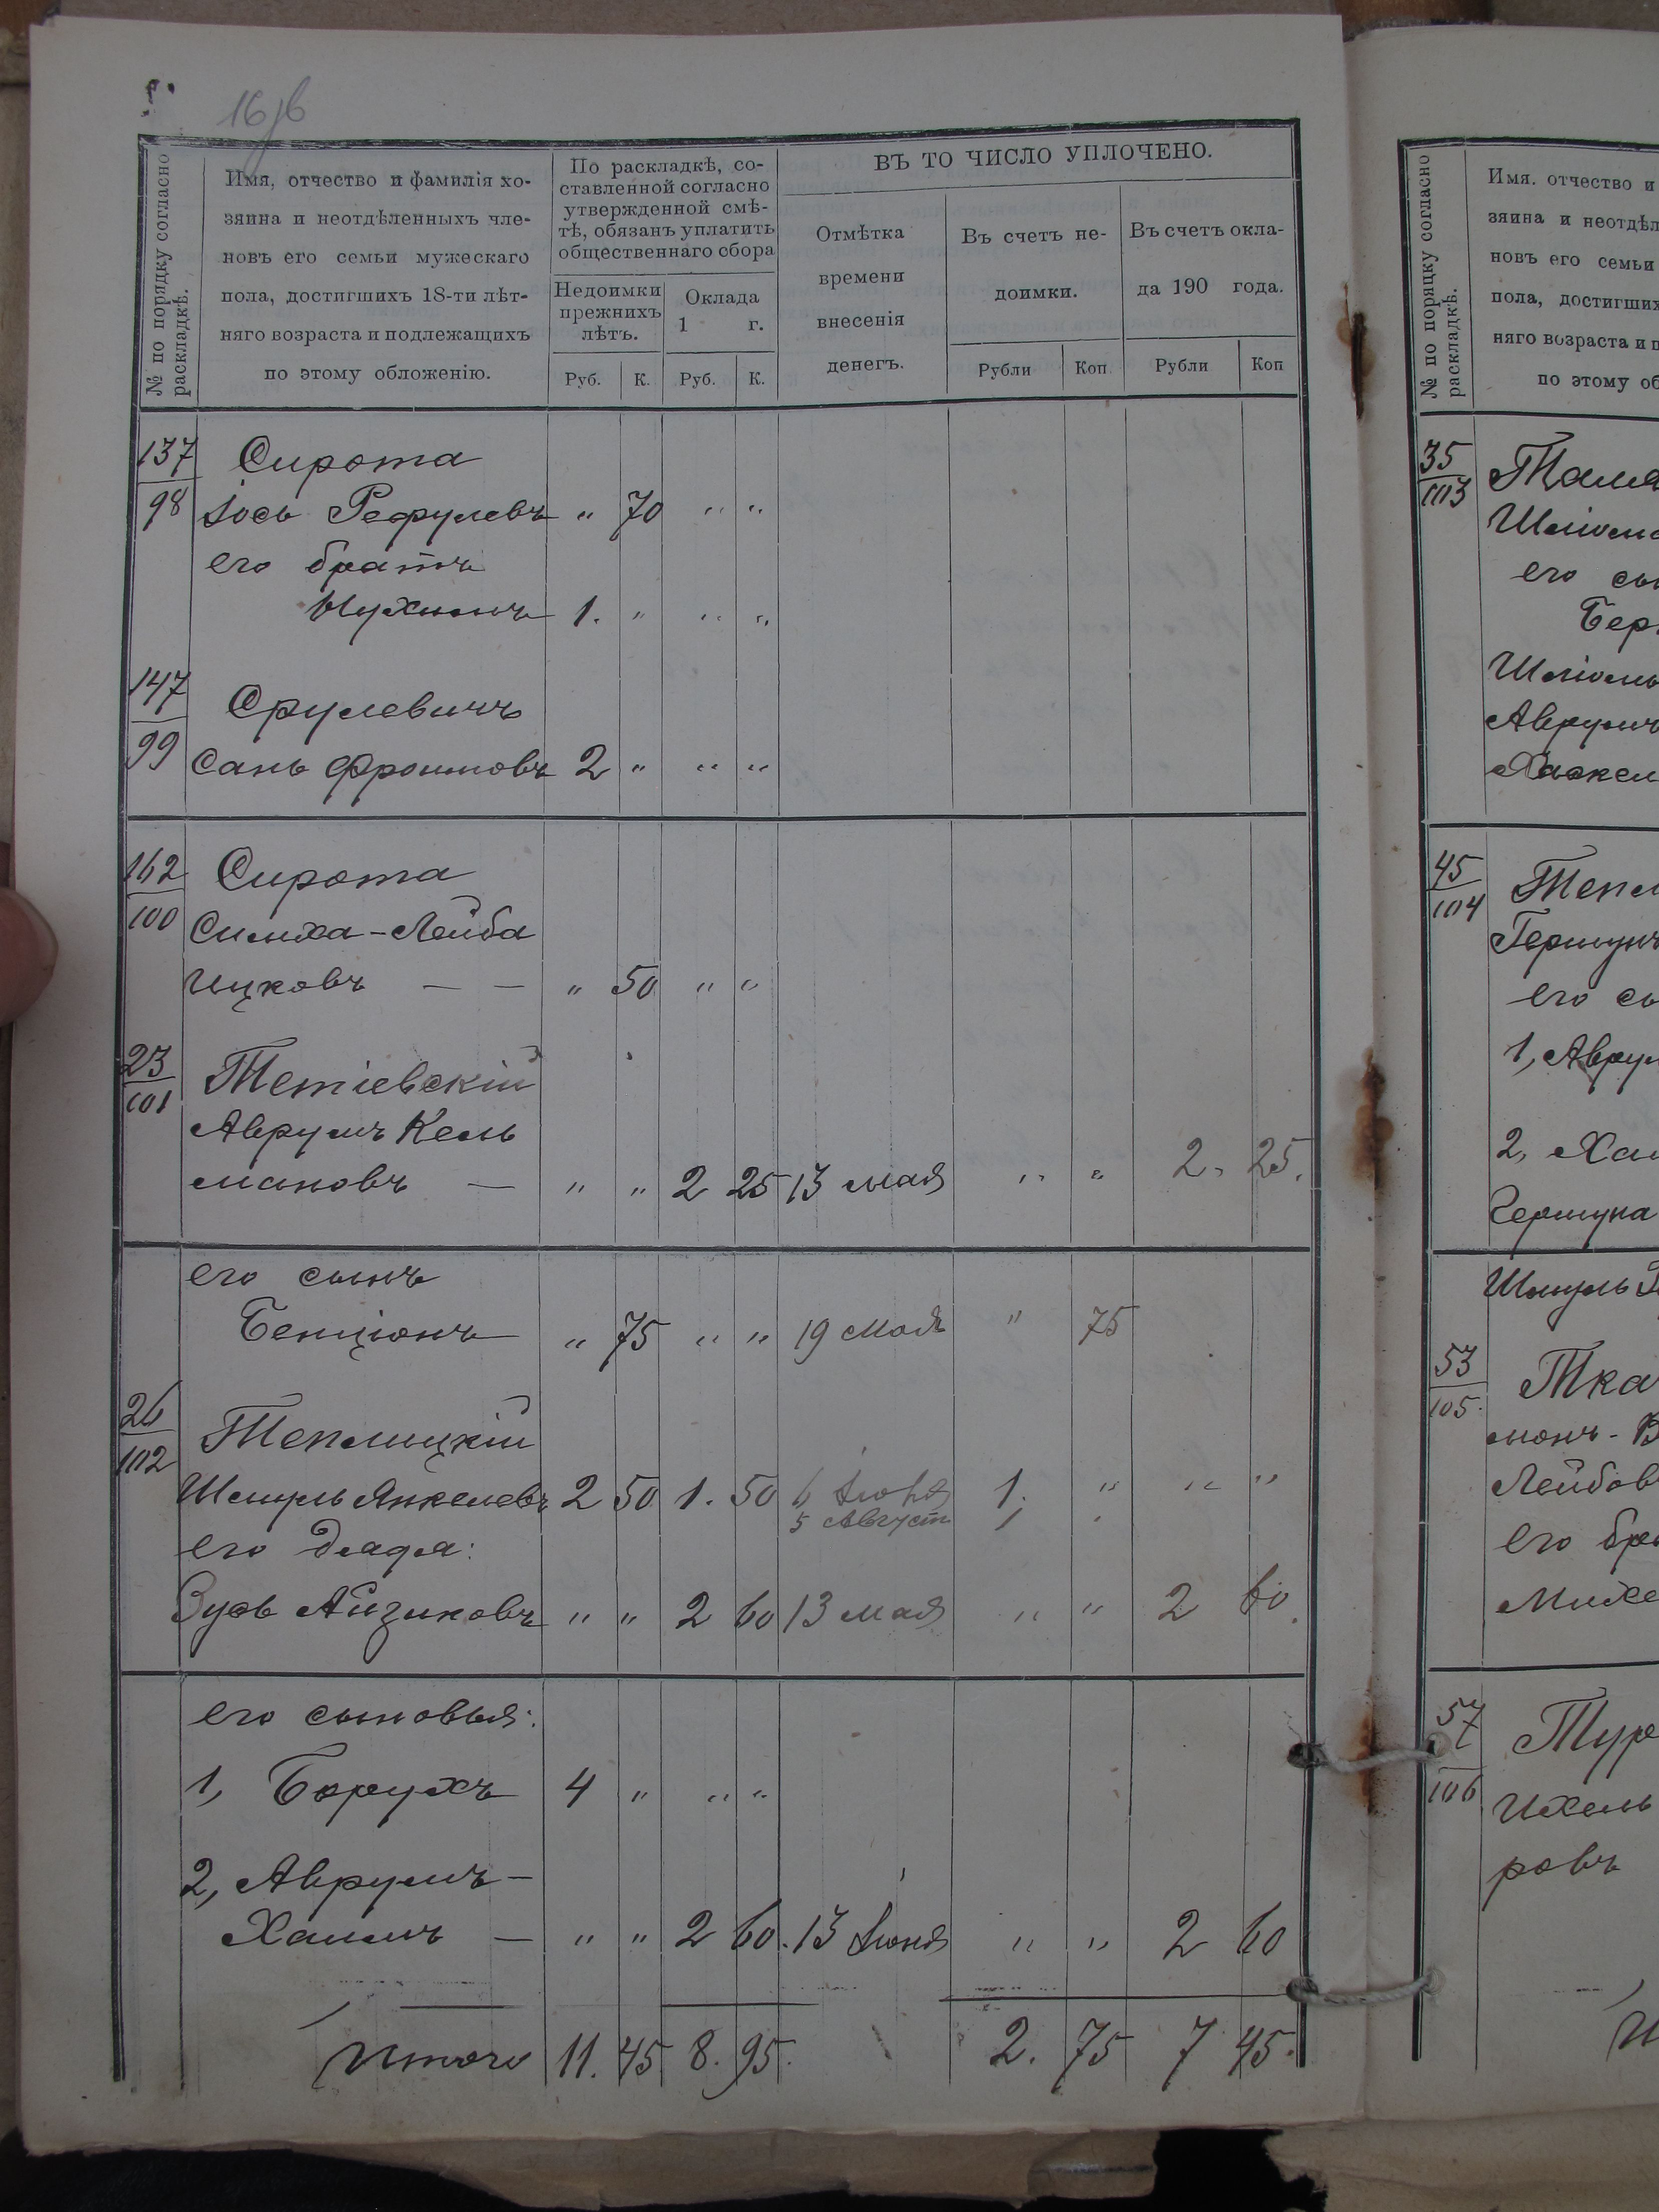 16
№ по порядку согласно раскладкѣ.
Имя, отчество и фамилія хо-
зяина и неотдѣленныхъ чле-
новъ его семьи мужескаго
пола, достигшихъ 18-ти лѣт-
няго возраста и подлежащихъ
по этому обложенію.
По раскладкѣ, со-
ставленной согласно
утвержденной смѣ-
тѣ, обязанъ уплатить
общественнаго сбора
Недоимки
прежнихъ
лѣтъ.
Оклада
1 г.
Руб. К. Руб. К.
ВЪ ТО ЧИСЛО УПЛОЧЕНО.
Отмѣтка
времени
внесенія
денегъ.
Въ счетъ не-
доимки.
Въ счетъ окла-
да 190 года.
Рубли Коп. Рубли Коп
137 Сирота
98 Іось Рефулевъ " 70 " "
его братъ
Нухимъ 1. " " "
147 Срулевичъ
99 Сань Фроимовъ 2 " " "
162 Сирота
100 Симха-Лейба
Ицковъ — — " 50 " "
23 Тетіевскій
101 Аврумъ Кель
мановъ — " " 2 25 13 мая " " 2. 25.
его сынъ
Бенціонъ " 75 " " 19 мая " 75
26 Теплицкій
102 Шмуль Янкелевъ 2 50 1. 50 6 Іюня 1. " " "
5 Август 1
его дядя:
Зусь Айзиковъ " " 2 60 13 мая " " 2 60.
его сыновья:
1, Борухъ 4 " " "
2, Аврумъ-
Хаимъ — " " 2 60. 13 Іюня " " 2 60
Итого 11. 45 8. 95. 2. 75 7 45.
№ по порядку согласно раскладкѣ.
Имя. отчество и
зяина и неотдѣл
новъ его семьи
пола, достигших
няго возраста и п
по этому об
35
103
Шліома
его сы
Бер
Шліомы
Аврумъ
Хаскел
45 Тепл
104 Гершунъ
его сы
1, Аврум
2, Хаи
Гершуна
Шмуль
53 Тка
105.
монъ-В
Лейбов
его бра
Михе
57 Тур
106 Ихель
ровъ
И